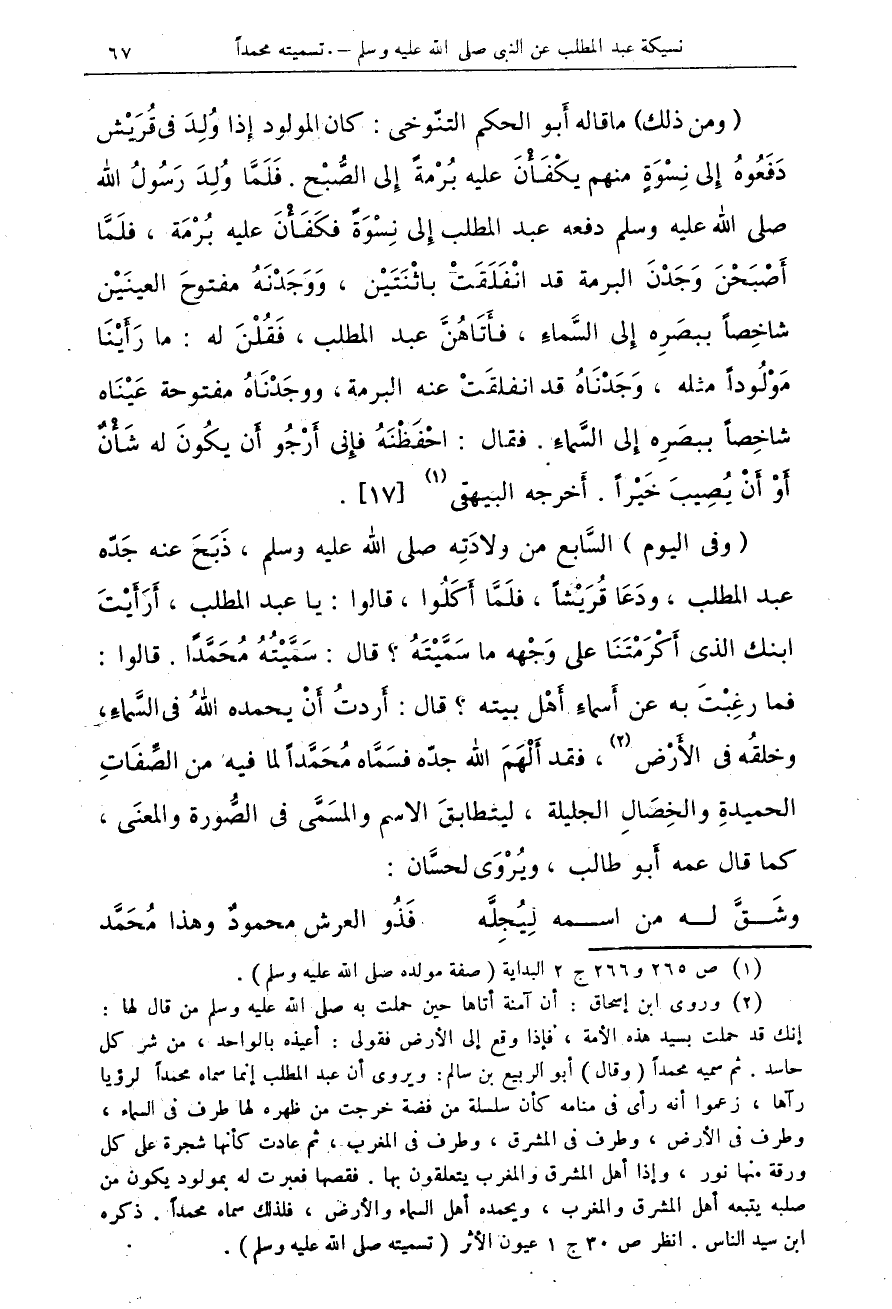 نسيكة عبد المطلب عن النبى صلى الله عليه وسلم - تسميته محمداً ٦٧
( ومن ذلك) ماقاله أَبو الحكم التنّوخى : كان المولود إذا وُلِدَ فى قُرَيْش
دَفَعُوهُ إلى نِسْوَةٍ منهم يكْفَأْنَ عليه بُرْمةً إلى الصُّبْح . فَلَمَّا وُلِدَ رَسُولُ الله
صلى الله عليه وسلم دفعه عبد المطلب إلى نِسْوَةً فكَفَأْنَ عليه بُرْمَة ، فلَمَّا
أَصْبَحْنَ وَجَدْنَ البرمة قد انْفَلَقَتْ باثْنَتَيْن ، وَوَجَدْنَهُ مفتوحَ العينَيْن
شاخِصاً ببصَرِه إلى السَّماءِ ، فأَتَاهُنَّ عبد المطلب ، فَقُلْنَ له : ما رَأَيْنَا
مَوْلُوداً مثله ، وَجَدْنَاهُ قد انفلقَتْ عنه البرمة، ووجَدْنَاهُ مفتوحة عَيْنَاه
شاخِصاً ببصَرِه إلى السَّماء . فقال : احْفَظْنَهُ فإنى أَرْجُو أَن يكُونَ له شَأْنٌ
أَوْ أَنْ يُصِيبَ خَيْراً . أَخرجه البيهقى (١) [١٧] .
( وفى اليوم ) السَّابع من ولادَتِه صلى الله عليه وسلم ، ذَبَحَ عنه جَدّه
عبد المطلب ، ودَعَا قُرَيْشاً ، فلَمَّا أَكَلُوا ، قالوا : يا عبد المطلب ، أَرَأَيْتَ
ابنك الذى أَكْرَمْتَنَا على وَجْهِه ما سَمَّيْتَهُ ؟ قال : سَمَّيْتُهُ مُحَمَّدًا . قالوا :
فما رغِبْتَ به عن أَسماءِ أَهْل بيته ؟ قال : أَردتُ أَنْ يحمده اللهُ فى السَّماءِ،
وخلقُه فى الأَرْض (٢) ، فقد أَلْهَمَ الله جدّه فسَمَّاه مُحَمَّداً لما فيه من الصِّفَاتِ
الحميدةِ والخِصَالِ الجليلة ، ليتطابقَ الاسم والمسَمَّى فى الصُّورة والمعنَى ،
كما قال عمه أَبو طالب ، ويُرْوَى لحسَّان :
وشَـــقَّ لـــه من اســـمه لِيُجِلَّه فَذُو العرش محمودٌ وهذا مُحَمَّد
(١) ص ٢٦٥ و ٢٦٦ ج ٢ البداية ( صفة مولده صلى الله عليه وسلم ) .
(٢) وروى ابن إسحاق : أن آمنة أتاها حين حملت به صلى الله عليه وسلم من قال لها :
إنك قد حملت بسيد هذه الأمة ، فإذا وقع إلى الأرض فقولى : أعيذه بالواحد ، من شر كل
حاسد . ثم سميه محمداً ( وقال ) أبو الربيع بن سالم: ويروى أن عبد المطلب إنما سماه محمداً لرؤيا
رآها ، زعموا أنه رأى فى منامه كأن سلسلة من فضة خرجت من ظهره لها طرف فى السماء ،
وطرف فى الأرض ، وطرف فى المشرق ، وطرف فى المغرب ، ثم عادت كأنها شجرة على كل
ورقة منها نور ، وإذا أهل المشرق والمغرب يتعلقون بها . فقصها فعبرت له بمولود يكون من
صلبه يتبعه أهل المشرق والمغرب ، ويحمده أهل السماء والأرض ، فلذلك سماه محمداً . ذكره
ابن سيد الناس . انظر ص ٣٠ ج ١ عيون الأثر ( تسميته صلى الله عليه وسلم ) .